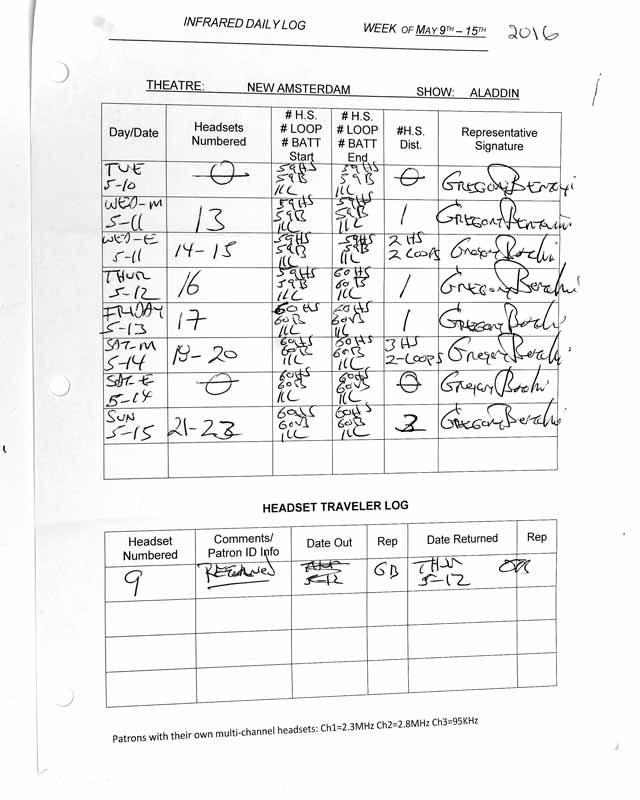 INFRARED DAILY LOG WEEK OF MAY 9TH – 15TH 2016
THEATRE: NEW AMSTERDAM SHOW: ALADDIN
Day/Date Headsets Numbered # H.S. # LOOP # BATT Start # H.S. # LOOP # BATT End #H.S. Dist. Representative Signature
TUE 5-10 59HS 59B 1LC 59HS 59B 1LC GREGORY
WED-M 5-11 13 59HS 59B 1LC 59HS 59B 1LC 1 GREGORY
WED-E 5-11 14-15 59HS 59B 1LC 59HS 59B 1LC 2 HS 2 LOOPS GREGORY
THUR 5-12 16 59HS 59B 1LC 60HS 60B 1LC 1 GREGORY
FRIDAY 5-13 17 60HS 60B 1LC 60HS 60B 1LC 1 GREGORY
SAT-M 5-14 18-20 60HS 60B 1LC 60HS 60B 1LC 3 HS 2-LOOPS GREGORY
SAT-E 5-14 60HS 60B 1LC 60HS 60B 1LC GREGORY
SUN 5-15 21-23 60HS 60B 1LC 60HS 60B 1LC 3 GREGORY
HEADSET TRAVELER LOG
Headset Numbered Comments/ Patron ID Info Date Out Rep Date Returned Rep
9 RETURNED 5-12 GB THUR 5-12
Patrons with their own multi-channel headsets: Ch1=2.3MHz Ch2=2.8MHz Ch3=95KHz